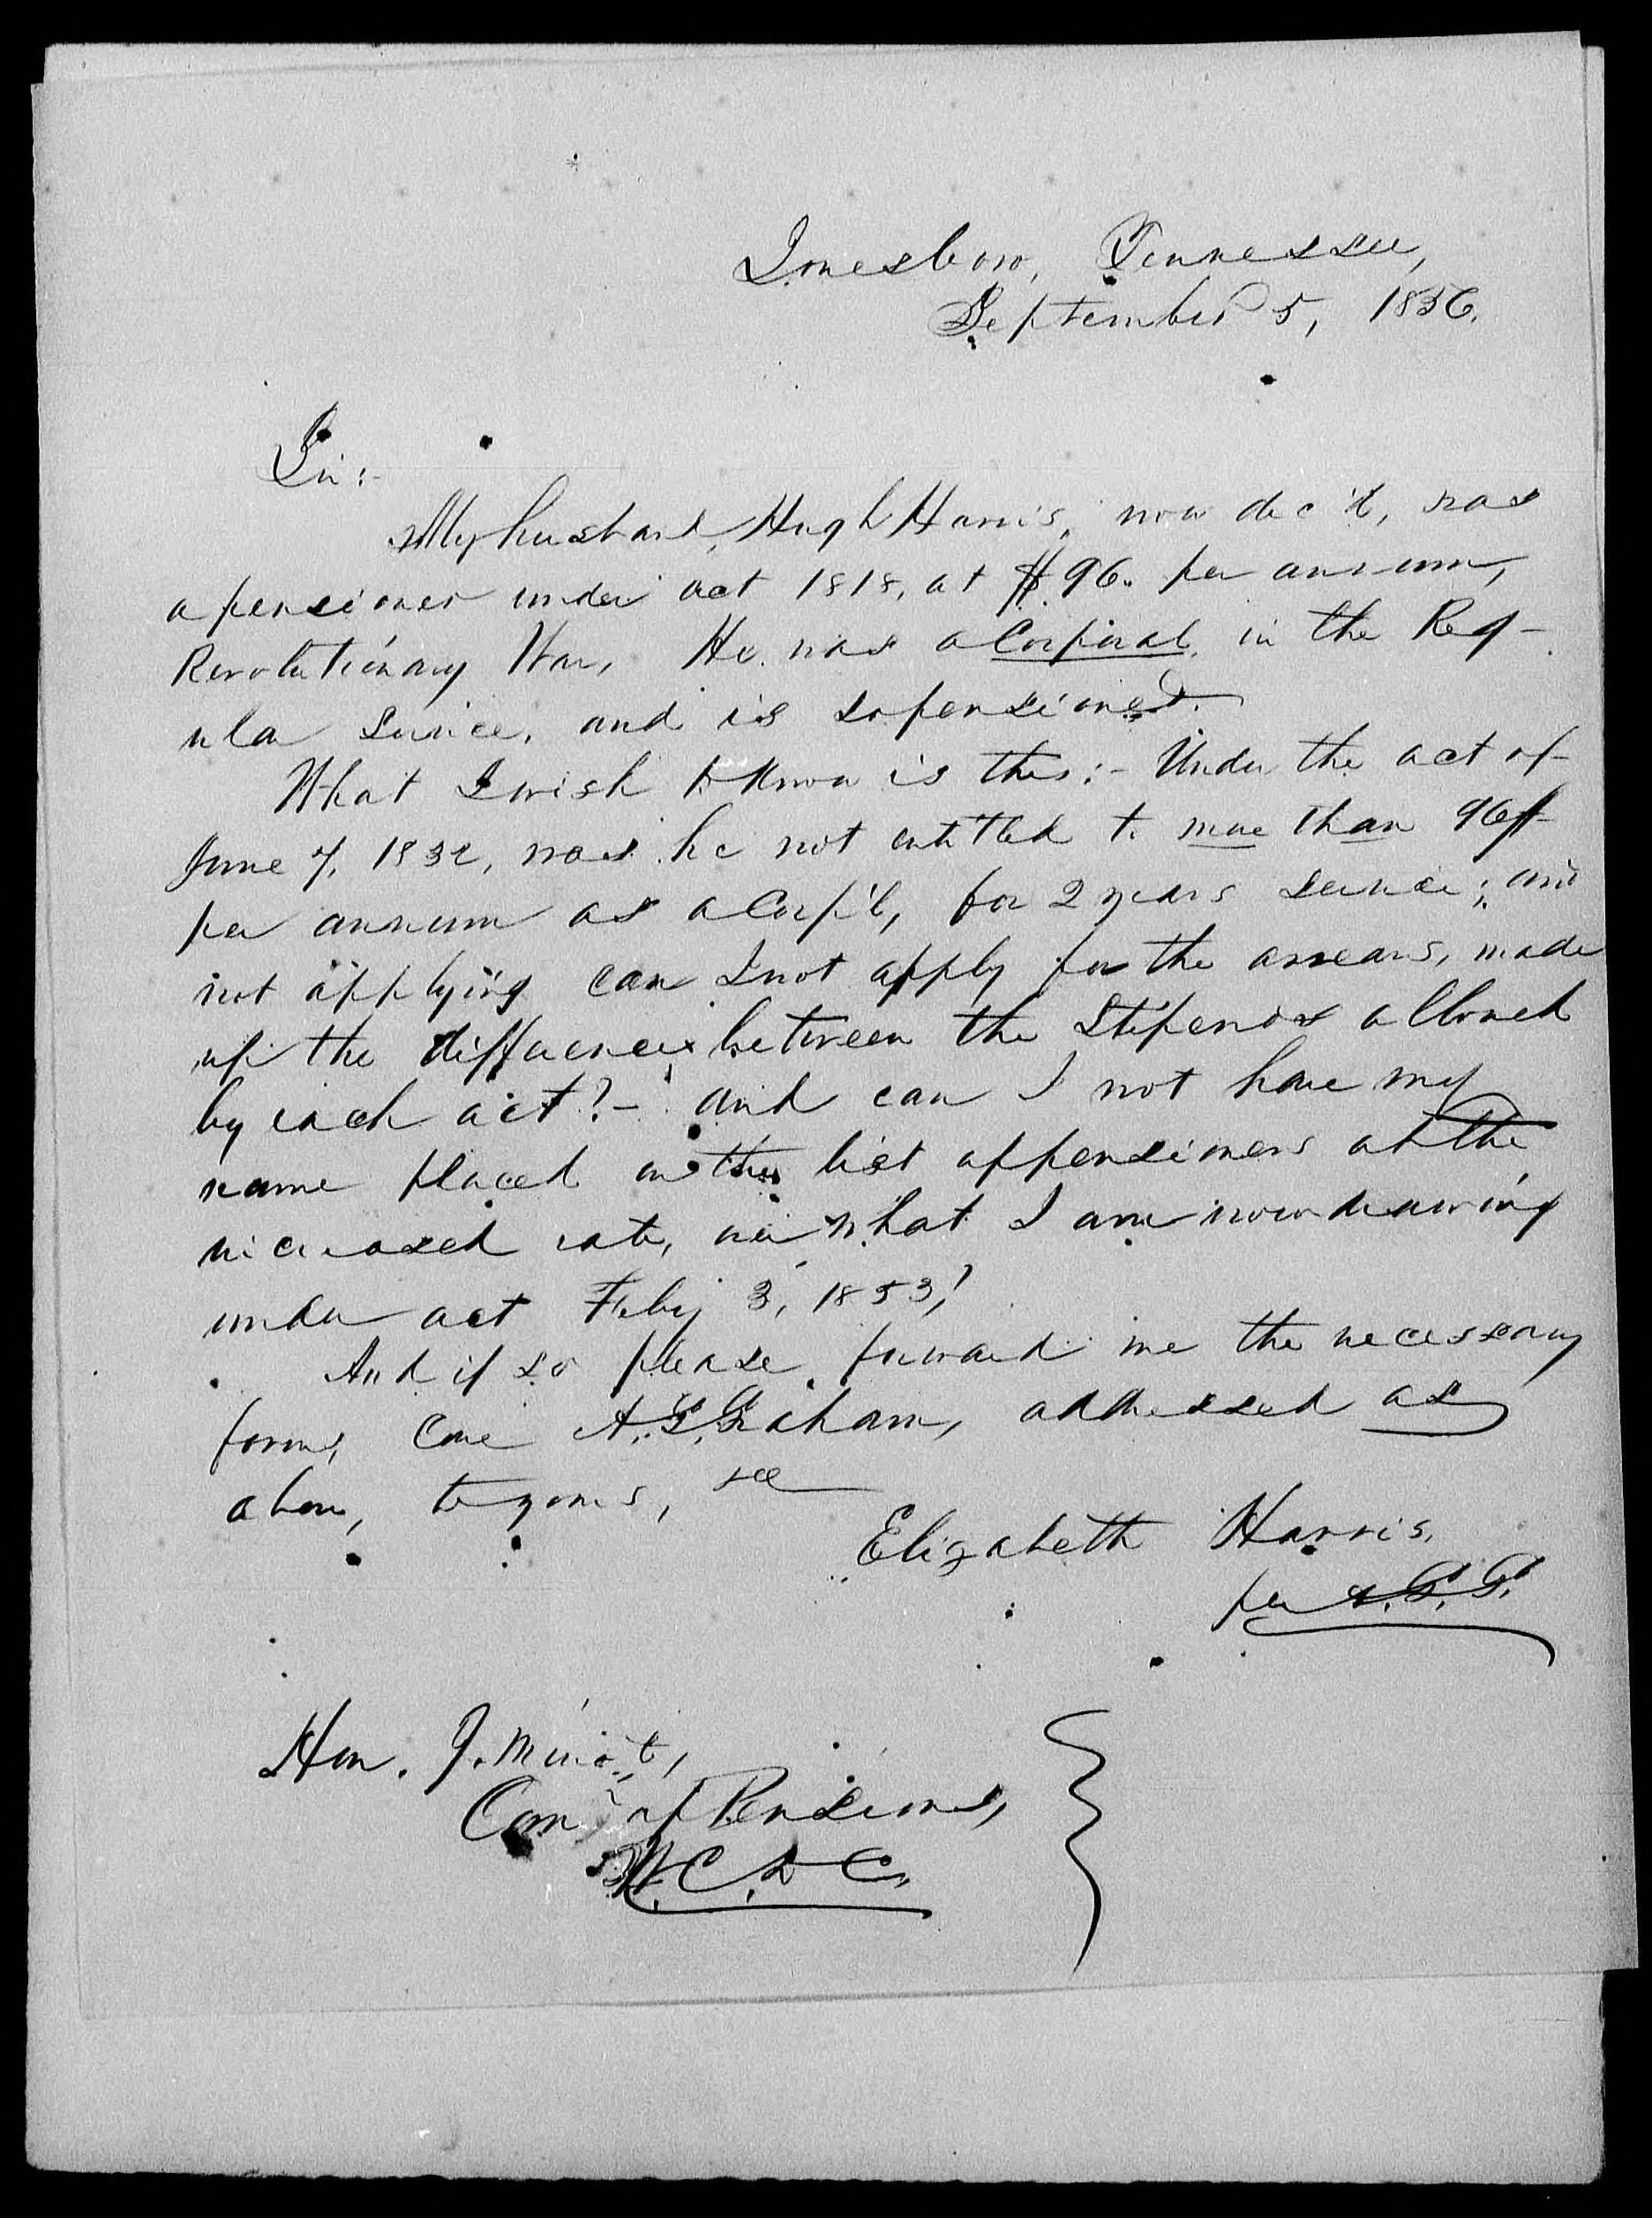 Jonesboro, Tennessee,
September 5, 1856.
Sir:-
My husband, Hugh Harris, now dec'd, was
a pensioner under act 1818, at $96. per annum,
Revolutionary War, He was a Corporal in the Reg-
ular Service, and is so pensioned.
What I wish to know is this:- Under the act of
June 7, 1832, was he not entitled to more than 96$
per annum as a Corp'l, for 2 years service; and
not applying can I not apply for the arrears, made
up the differences between the Stipends allowed
by each act?- and can I not have my
name placed on the list of pensioners at the
increased rate, over what I am now drawing
under act Feby 3, 1853?
And if so please forward me the necessary
forms, Care A. G. Graham, addressed as
above, to yours, &c
Elizabeth Harris,
per A. G. G.
Hon. J. Minot,
Comr of Pensions,
W. C. D C.